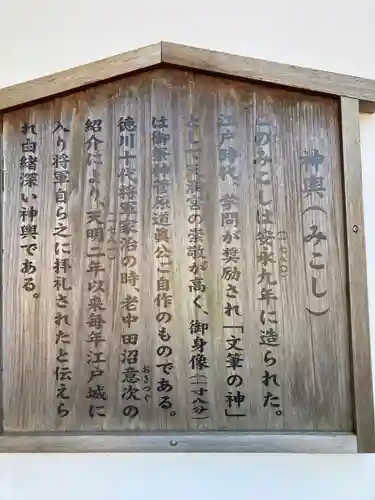 神輿(みこし)
このみこしは安永九年に造られた。
(一七八〇)
江戸時代、学問が奨励され「文筆の神」
として天満宮の崇敬が高く、御身像(一寸八分)
は御祭神菅原道真公ご自作のものである。
徳川十代将軍家治の時、老中田沼意次の
おきつぐ
紹介により、天明二年以来毎年江戸城に
(一七八二)
入り将軍自ら之に拝礼されたと伝えら
れ由緒深い神輿である。